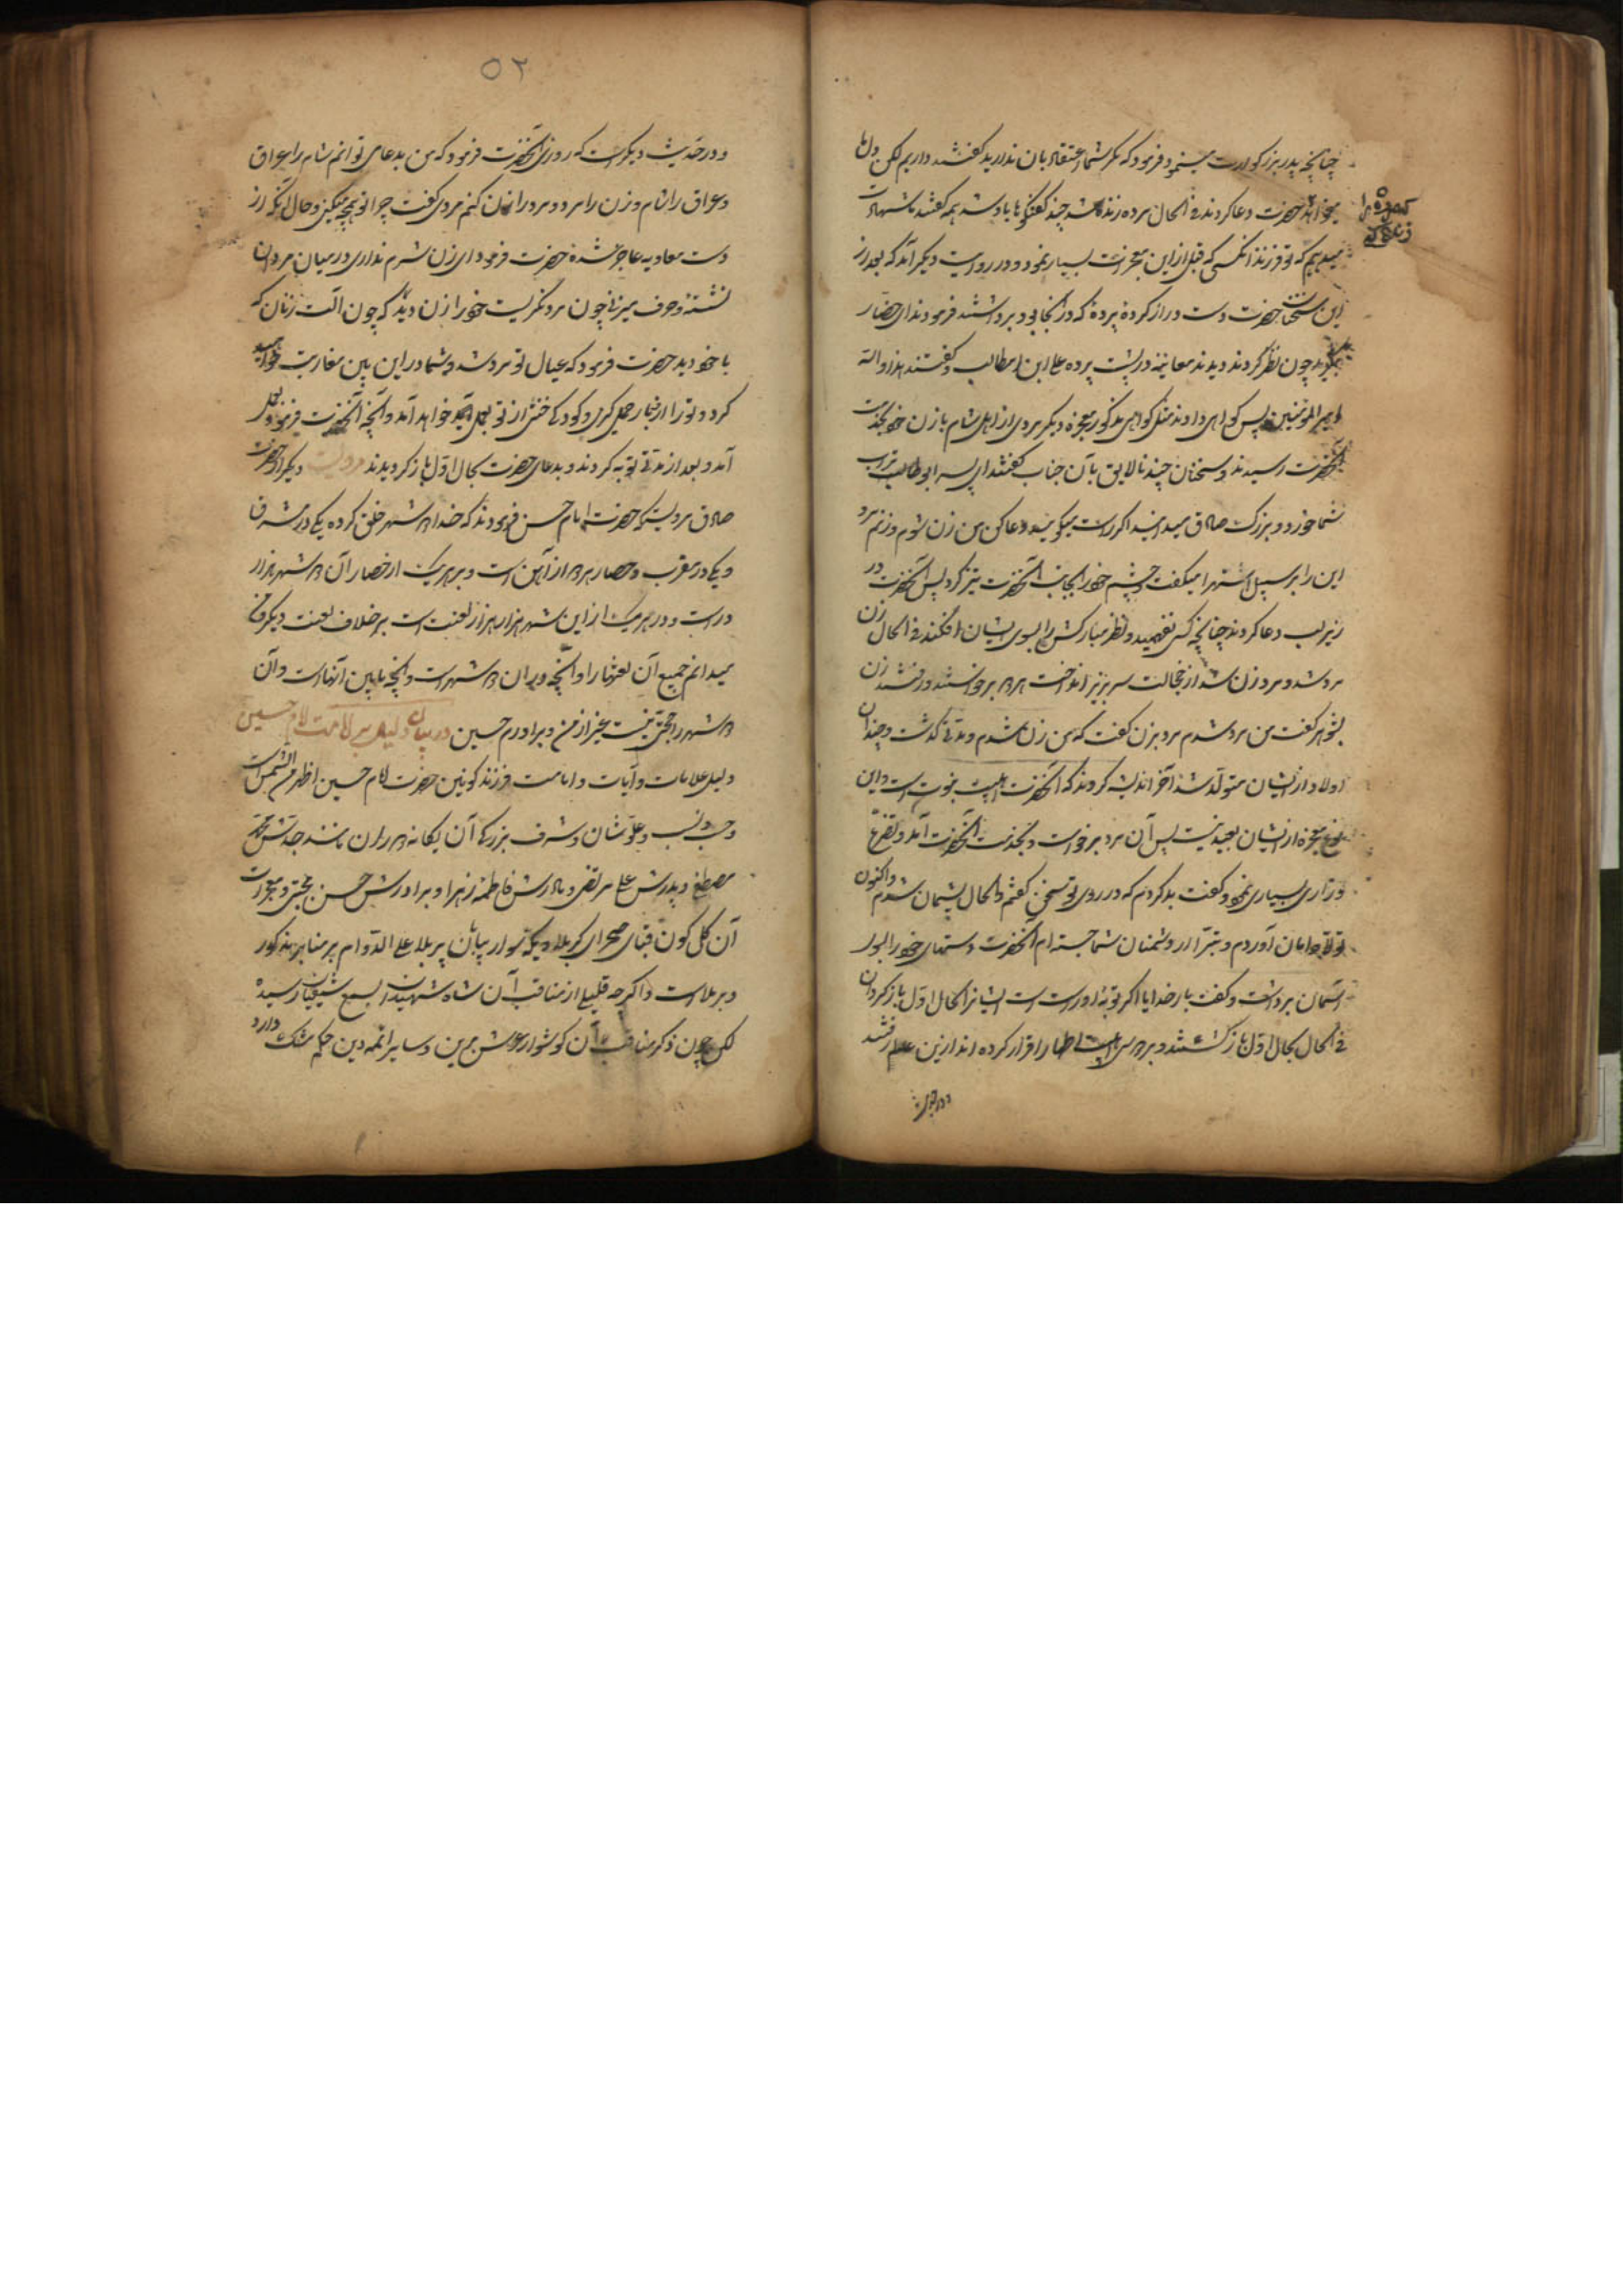 چنانچه پدر بزرگوارت مینمود فرمود که مگر شما اعتقاد بان ندارید گفتند داریم لکن دلها
میخواهد حضرت دعا کردند فی الحال مرده زنده شد چند گفتگو با او شد همه گفتند ما شهادت
میدهیم که تو فرزند انکسی که قبل ازاین معجزات بسیار نمود و در روایت دیگر آمد که بعد از
این سخنان حضرت دست دراز کرده پرده که در انجا بود برداشتند فرمودند ای حضار
چون نظر کردند دیدند معاینه در پشت پرده علی ابن ابیطالب و گفتند هذا والله
امیر المومنین پس گواهی دادند مثل گواهی مذکور معجزه دیگر مردی از اهل شام با زن خود بخدمت
آنحضرت رسیدند و سخنان چند نالایق بآن جناب گفتند ای پسر ابوطالب
شما خورد و بزرگ صادق میدانید اگر راست میگویید دعا کن من زن شوم و زنم مرد
این را بر سبیل استهزا میگفت و چشم خود را بجانب آنحضرت تیز کرد پس آنحضرت در
زیر لب دعا کردند چنانچه کسی نفهمید و نظر مبارکش را بسوی ایشان افکند فی الحال زن
مرد شد و مرد زن شد از خجالت سر بزیر انداخت هر دو برخواستند و رفتند زن
بشوهر گفت من مرد شدم مرد بزن گفت که من زن شدم و مدتی گذشت و چندان
اولاد از ایشان متولد شد آخر اندیشه کردند که آنحضرت اهلبیت نبوت است و این
نوع معجزه از ایشان بعید نیست پس آن مرد برخواست و بخدمت آنحضرت آمد و تضرع
و زاری بسیاری نمود و گفت بد کردم که در روی تو سخن گفتم و الحال پشیمان شدم و اکنون
تولا بدامان آوردم و تبرا از دشمنان شما جسته ام آنحضرت دستهای خود را بسوی
آسمان برداشت و گفت بار خدایا اگر توبه او راست است ایشانرا بحال اول بازگردان
فی الحال بحال اول باز گشتند و بر امر اهلبیت اطهار اقرار کرده اند ازین عالم رفتند
و در حدیث
۵۲
و در حدیث دیگر است که روزی آنحضرت فرمود که من بدعای توانم شام را عراق
و عراق را شام و زن را مرد و مرد را زن کنم مردی گفت چرا توهمچه میکنی و حال آنکه از
دست معاویه عاجز شده حضرت فرمود ای زن شرم نداری در میان مردان
نشسته و حرف میزنی چون مرد نگریست خود را زن دید که چون آلت زنان که
با خود دید حضرت فرمود که عیال تو مرد شد و شما در این بین مقاربت خواهید
کرد و تو را از حمل گیری و کودک خنثی از تو بعمل خواهد آمد و آنچه آنحضرت فرمود بعمل
آمد و بعد از مدتی توبه کردند و بدعای حضرت بحال اول باز گردیدند مرویست دیگر از حضرت
صادق مرویست که حضرت امام حسن فرمودند که خدا دو شهر خلق کرده یکی در مشرق
و یکی در مغرب و حصار هر دو از آهن است و بر هر یک از حصار آن دو شهر هزار
در است و در هر یک از این شهر هزار هزار لغت است بر خلاف لغت دیگر و من
میدانم جمیع آن لغتها را و آنچه در آن دو شهر است و آنچه مابین آنهاست و آن
دو شهر را حجتی نیست بغیر از من و برادرم حسین در بیان دلیل بر امامت امام حسین
دلیل علامات و آیات و امامت فرزند کونین حضرت امام حسین اظهر من الشمس است
و حسب و نسب و علو شان و شرف بزرگی آن یگانه دوران مانند جدش محمد
مصطفی و پدرش علی مرتضی و مادرش فاطمه زهرا و برادرش حسن مجتبی و معجزات
آن گل گون قبای صحرای کربلا و یکه سوار بیابان پر بلا علی الدوام بر منابر مذکور
و بر ملاست و اگرچه قلیلی از مناقب آن شاه شهیدان بسمع شیعیان رسیده
لکن چون ذکر مناقب آن گوشوار عرش برین و سایر ائمه دین حکم مشک دارد